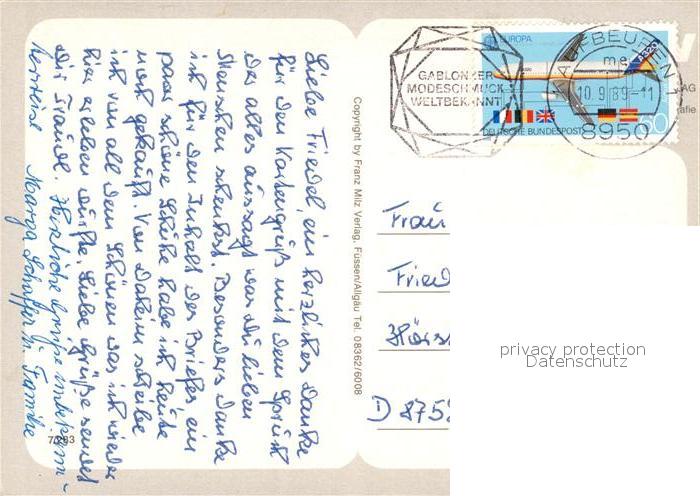 Liebe Friedel, ein herzliches Danke
für den Kartengruß mit dem Spruch
der alles aussagt was du lieben
Menschen schenkst. Besonders Danke
ich für den Inhalt des Briefes, ein
paar schöne Schuhe habe ich heute
noch gekauft. Von Daheim schreibe
ich von all dem Schönen was ich wieder
hier erleben durfte. Liebe Grüße sendet
Dir Traudl. Herzliche Grüße unbekann-
terweise Marga Schäffer u. Familie
7/263
Copyright by Franz Milz Verlag, Füssen/Allgäu Tel. 08362/6008
GABLONZER
MODESCHMUCK
WELTBEKANNT
EUROPA
A320
DEUTSCHE BUNDESPOST
60
KAUFBEUREN 1
me
10.9.89-11
8950
AG
afie
Frau
Fried
D 875
privacy protection
Datenschutz